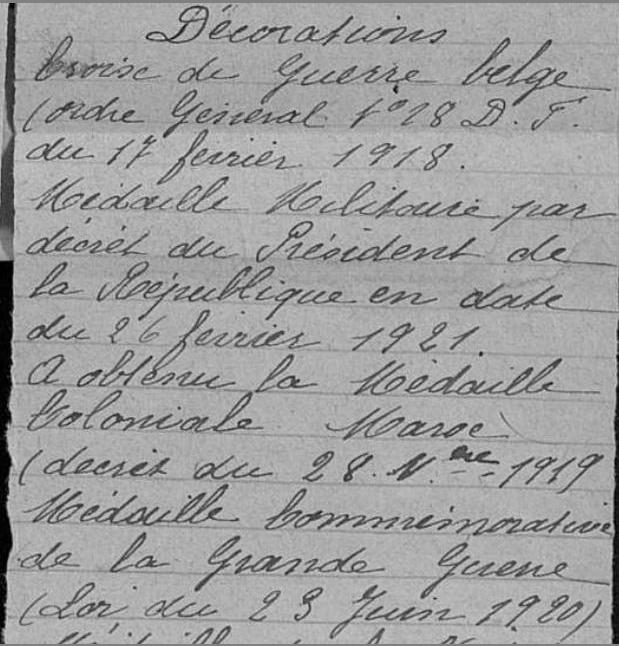 Décorations
Croix de Guerre belge
(ordre Général n° 18 D. T.
du 17 fevrier 1918.
Médaille Militaire par
décret du Président de
la République en date
du 26 fevrier 1921.
A obtenu la Médaille
Coloniale Maroc
(decret du 28. N.bre 1919
Médaille Commémorative
de la Grande Guerre
(Loi du 23 Juin 1920)